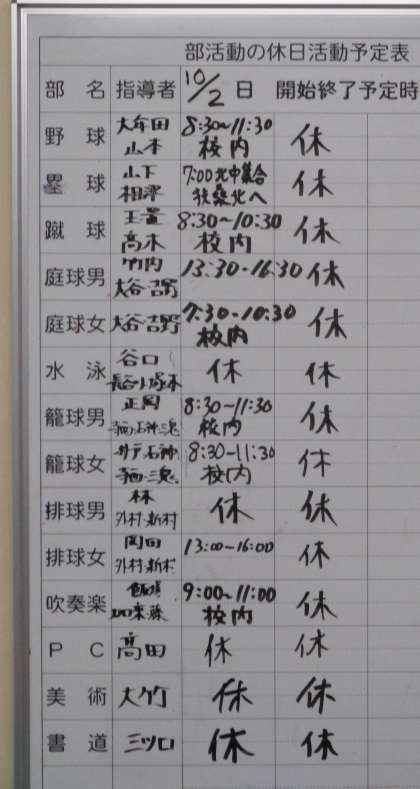 部活動の休日活動予定表
部 名 指導者 10/2 日 開始終了予定時
野 球 大年田 山本 8:30~11:30 校内 休
塁 球 山下 相澤 7:00北中集合 扶桑北へ 休
蹴 球 玉置 高木 8:30~10:30 校内 休
庭球男 竹内 大谷・吉野 13:30-16:30 休
庭球女 大谷・吉野 7:30-10:30 校内 休
水 泳 谷口 長谷川・塚本 休 休
籠球男 正岡 8:30~11:30 校内 休
籠球女 井戸・石神 8:30-11:30 校内 休
排球男 林 外村・新村 休 休
排球女 岡田 外村・新村 13:00~16:00 休
吹奏楽 加藤 9:00~11:00 校内 休
P C 高田 休 休
美 術 大竹 休 休
書 道 三ツ口 休 休